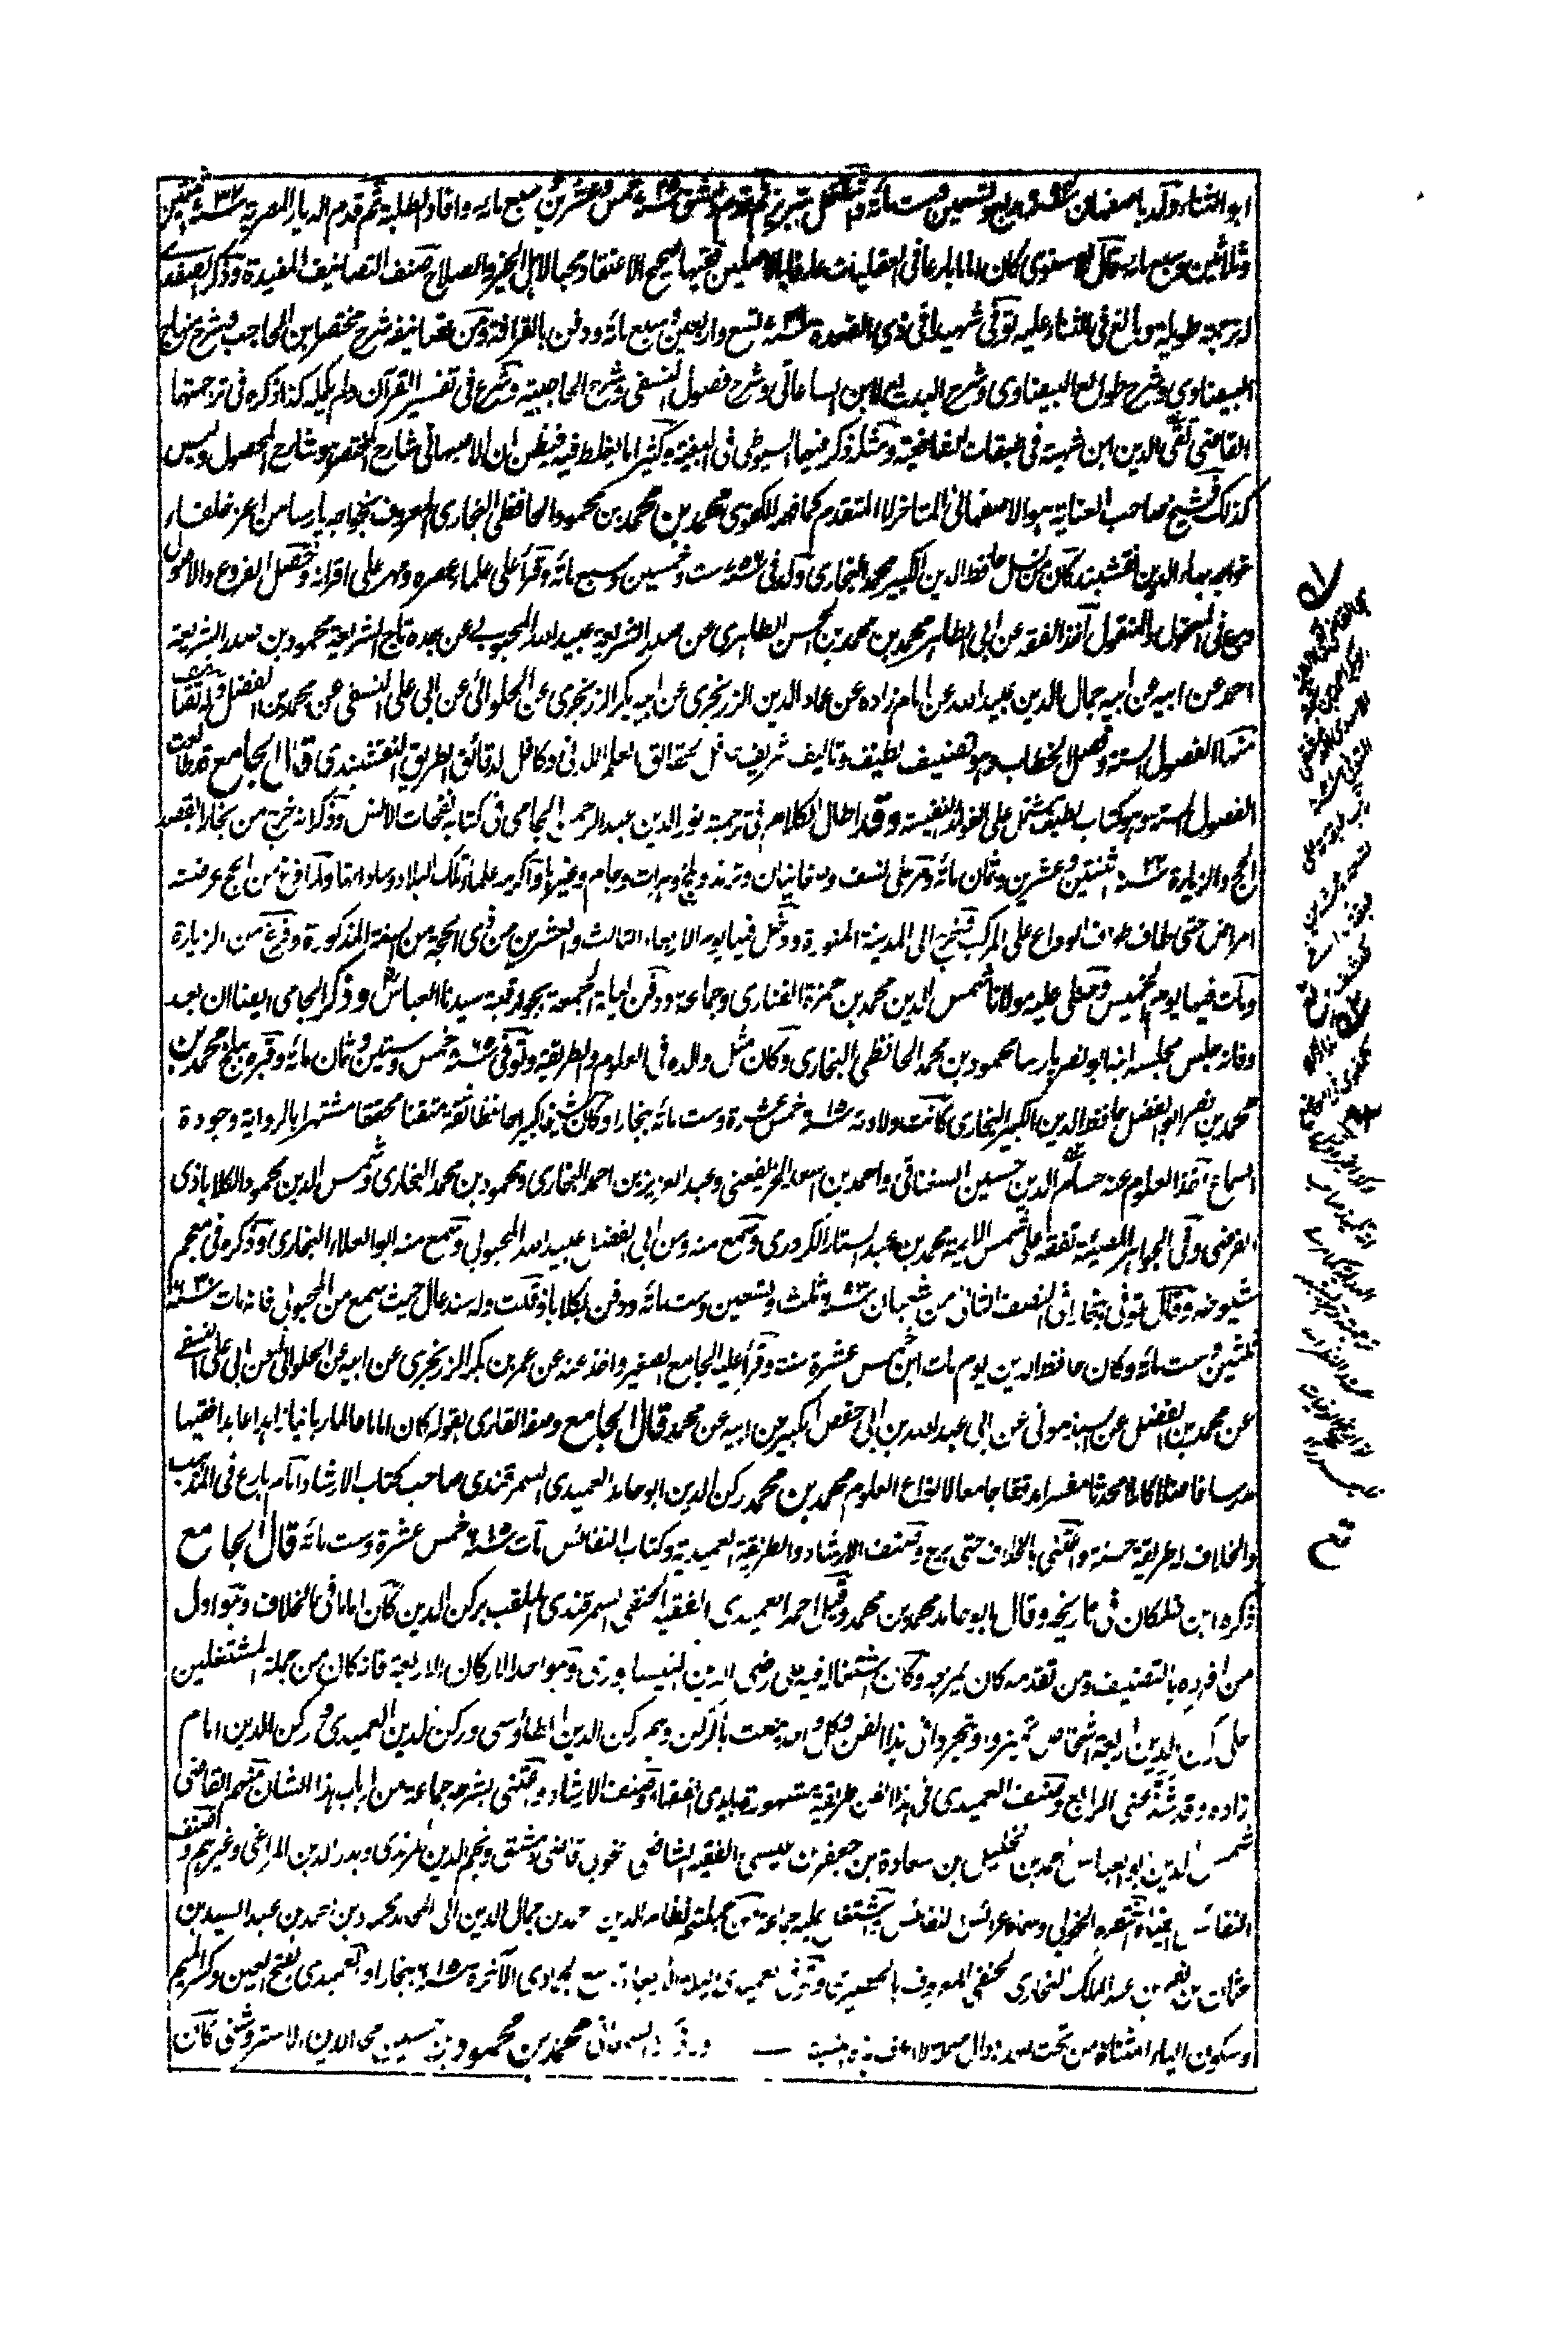 ابو الثناء ولد باصفهان سنة ٦٩٤ اربع وتسعين وست مائة واشتغل بتبريز ثم قدم دمشق سنة ٧٢٥ خمس وعشرين وسبع مائة وافاد الطلبة ثم قدم الديار المصرية سنة ٧٣٢ اثنتين
وثلاثين وسبع مائة قال الاسنوى كان اماما بارعا فى العقليات عارفا بالاصلين فقيها صحيح الاعتقاد محبا لاهل الخير والصلاح صنف التصانيف المفيدة وذكر الصفدى
له ترجمة طويلة وبالغ فى الثناء عليه توفى شهيدا فى ذى القعدة سنة تسع واربعين وسبع مائة ودفن بالقرافة ومن تصانيفه شرح مختصر ابن الحاجب وشرح منهاج
البيضاوى وشرح طوالع البيضاوى وشرح البديع لابن الساعاتى وشرح فصول النسفى وشرح الحاجبية وشرع فى تفسير القرآن ولم يكمله كذا ذكره فى ترجمتها
القاضى تقى الدين ابن شهبة فى طبقات الشافعية ومثله ذكر فيها السيوطى فى البغية وكثيرا ما يغلط فيه فيظن ان الاصبهانى شارح المختصر هو شارح المحصول وليس
كذلك فشيخ صاحب العناية هو الاصفهانى المتاخر لا المتقدم كما فهمه الكفوى محمد بن محمد بن محمود الحافظى البخارى المعروف بخواجه پارسا من اعز خلفاء
خواجه بهاء الدين نقشبند كان من نسل حافظ الدين الكبير محمد البخارى ولد فى سنة ٧٥٦ ست وخمسين وسبع مائة وقرأ على علماء عصره ومهر على اقرانه وحصل الفروع والاصول
وبرع فى المعقول والمنقول اخذ الفقه عن ابى الطاهر محمد بن محمد بن الحسن الطاهرى عن صدر الشريعة عبيد الله المحبوبى عن جده تاج الشريعة محمود بن صدر الشريعة
احمد عن ابيه عن ابيه جمال الدين عبيد الله عن امام زاده عن عماد الدين الزرنجرى عن ابيه بكر الزرنجرى عن الحلوائى عن ابى على النسفى عن محمد بن الفضل وله تصانيف
منها الفصول الستة وفصل الخطاب وهو تصنيف لطيف وتاليف شريف شامل لحقائق العلم اللدنى وكافل لدقائق الطريق النقشبندى قال الجامع قد طالعت
الفصول الستة وهو كتاب لطيف يشتمل على الفوائد النفيسة وقد اطال الكلام فى ترجمته نور الدين عبد الرحمن الجامى فى كتابه نفحات الانس وذكر انه خرج من بخارا بقصد
الحج والزيارة سنة ٨٢٢ اثنتين وعشرين وثمان مائة ومر على نسف وصغانيان وترمذ وبلخ وهرات وجام وغيرها واكرمه علماء تلك البلاد وساداتها ولما فرغ من الحج عرضته
امراض حتى طاف طواف الوداع على المركب فخرج الى المدينة المنورة ودخل فيها يوم الاربعاء الثالث والعشرين من ذى الحجة من السنة المذكورة وفرغ من الزيارة
ومات فيها يوم الخميس وصلى عليه مولانا شمس الدين محمد بن حمزة الفنارى وجماعة ودفن ليلة الجمعة بجوار قبة سيدنا العباس وذكر الجامى ايضا ان بعد
وفاته جلس مجلسه ابنه ابو نصر پارسا محمود بن محمد الحافظى البخارى وكان مثل والده فى العلوم والطريقة وتوفى سنة ٨٦٥ خمس وستين وثمان مائة وقبره ببلخ محمد بن
محمد بن نصر ابو الفضل حافظ الدين الكبير البخارى كانت ولادته سنة ٦١٥ خمس عشرة وست مائة ببخارا وكان شيخا كبيرا حافظا ثقة متقنا محققا مشتهرا بالرواية وجودة
السماع اخذ العلوم عنه حسام الدين حسين السغناقى واحمد بن اسعد الخريفعنى وعبد العزيز بن احمد البخارى ومحمود بن محمد البخارى وشمس الدين محمود الكلاباذى
الفرضى وفى الجواهر المضيئة تفقه على شمس الائمة محمد بن عبد الستار الكردرى وسمع منه ومن ابى الفضل عبيد الله المحبوبى وسمع منه ابو العلاء البخارى وذكره فى معجم
شيوخه وقال توفى ببخارا فى النصف الثانى من شعبان سنة ٦٩٣ ثلث وتسعين وست مائة ودفن بكلاباذ قلت وله سند عال حيث سمع من المحبوبى فانه مات سنة ٦٣٠
ثلثين وست مائة وكان حافظ الدين يوم مات ابن خمس عشرة سنة وقرأ عليه الجامع الصغير واخذ عنه عن عمر بن بكر الزرنجرى عن ابيه عن الحلوائى عن ابى على النسفى
عن محمد بن الفضل عن السبذمونى عن ابى عبد الله بن ابى حفص الكبير عن ابيه عن محمد قال الجامع وصفه القارى بقوله كان اماما عالما ربانيا زاهدا عابدا فقيها
مدرسا فاضلا كاملا محدثا مفسرا مدققا جامعا لانواع العلوم محمد بن محمد ركن الدين ابو حامد العميدى السمرقندى صاحب كتاب الارشاد امام بارع فى المذهب
والخلاف له طريقة حسنة واعتنى بالخلاف حتى برع وصنف الارشاد والطريقة العميدية وكتاب النفائس مات سنة ٦١٥ خمس عشرة وست مائة قال الجامع
ذكره ابن خلكان فى تاريخه وقال ابو حامد محمد بن محمد وقيل احمد العميدى الفقيه الحنفى السمرقندى الملقب بركن الدين كان اماما فى الخلاف وهو اول
من افرده بالتصنيف ومن تقدمه كان يمزجه وكان اشتغاله فيه على رضى الدين النيسابورى وهو احد الاركان الاربعة فانه كان من جملة المشتغلين
على رضى الدين اربعة اشخاص تميزوا وتبحروا فى هذا الفن وكل واحد ينعت بالركن وهم ركن الدين الطاوسى وركن الدين العميدى وركن الدين امام
زاده وقد شذ عنى الرابع وصنف العميدى فى هذا الفن طريقة مشهورة بايدى الفقهاء وصنف الارشاد واعتنى بشرحه جماعة من ارباب هذا الشان منهم القاضى
شمس الدين ابو العباس احمد بن خليل بن سعادة بن جعفر بن عيسى الفقيه الشافعى الخويى قاضى دمشق ونجم الدين المرندى وبدر الدين المراغى وغيرهم وصنف
النفائس ايضا واختصره الخويى وسماه عرائس النفائس واشتغل عليه جماعة من جملتهم نظام الدين احمد بن جمال الدين ابى المحامد محمود بن احمد بن عبد السيد بن
عثمان بن نصر بن عبد الملك البخارى الحنفى المعروف بالحصيرى وتوفى العميدى ليلة الاربعاء تاسع جمادى الآخرة سنة ٦١٥ ببخارا والعميدى بفتح العين وكسر الميم
وسكون الياء المثناة من تحت بعده دال مهملة لا اعرف هذه النسبة — ولم يذكر ها السمعانى محمد بن محمود بن حسين مجد الدين الاستروشنى كان